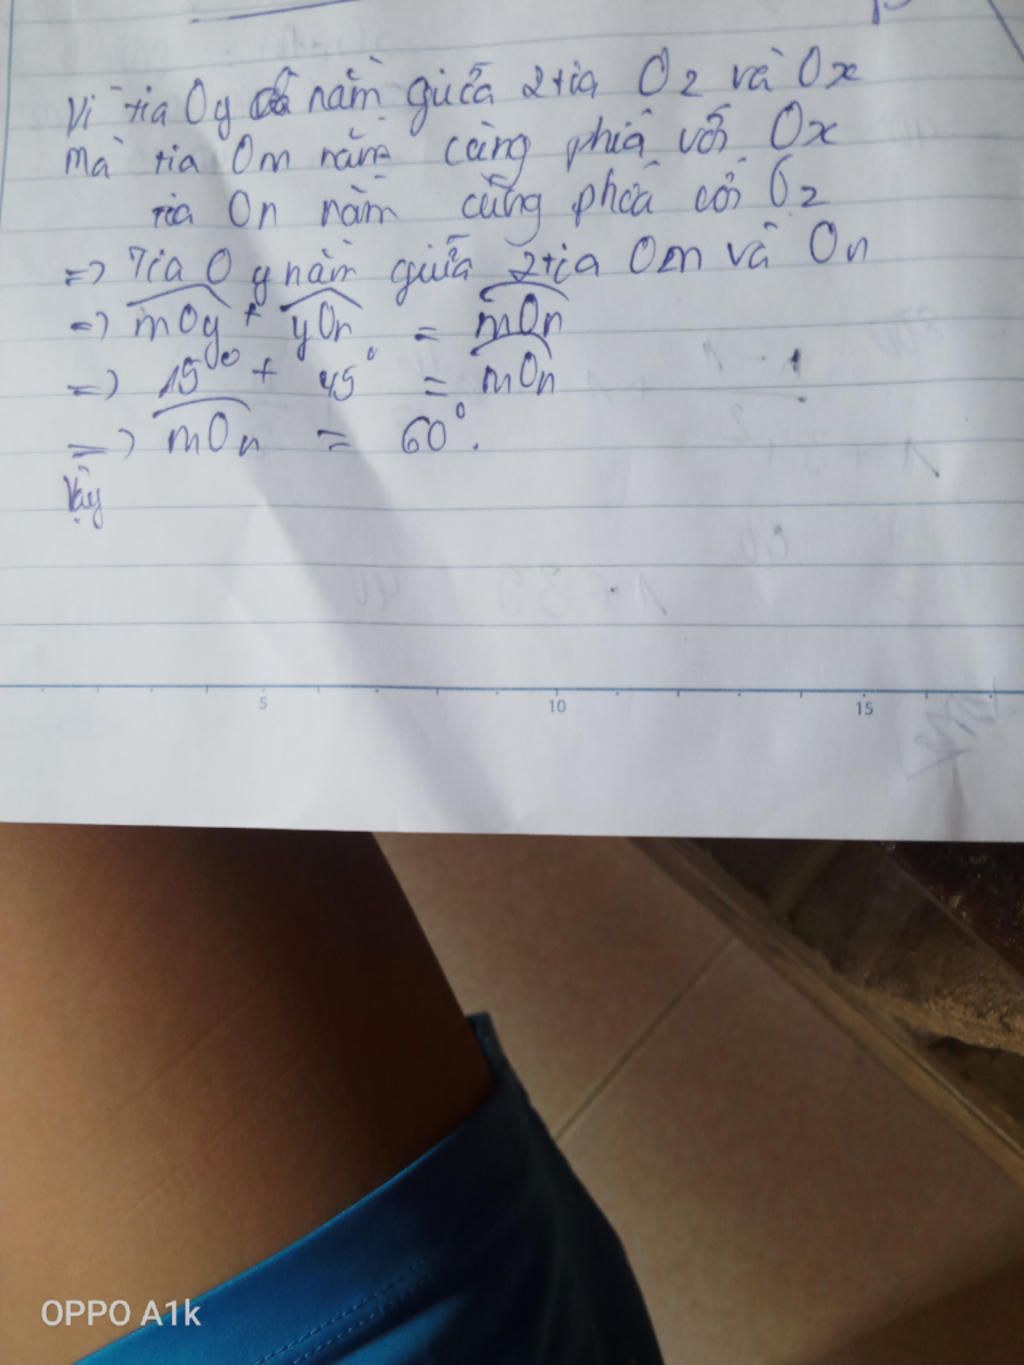 Vì tia Oy nằm giữa 2 tia Oz và Ox
Mà tia Om nằm cùng phía với Ox
tia On nằm cùng phía với Oz
=> Tia Oy nằm giữa 2 tia Om và On
=> mOy + yOn = mOn
=> 15° + 45° = mOn
=> mOn = 60°.
Vậy
5 10 15
OPPO A1k